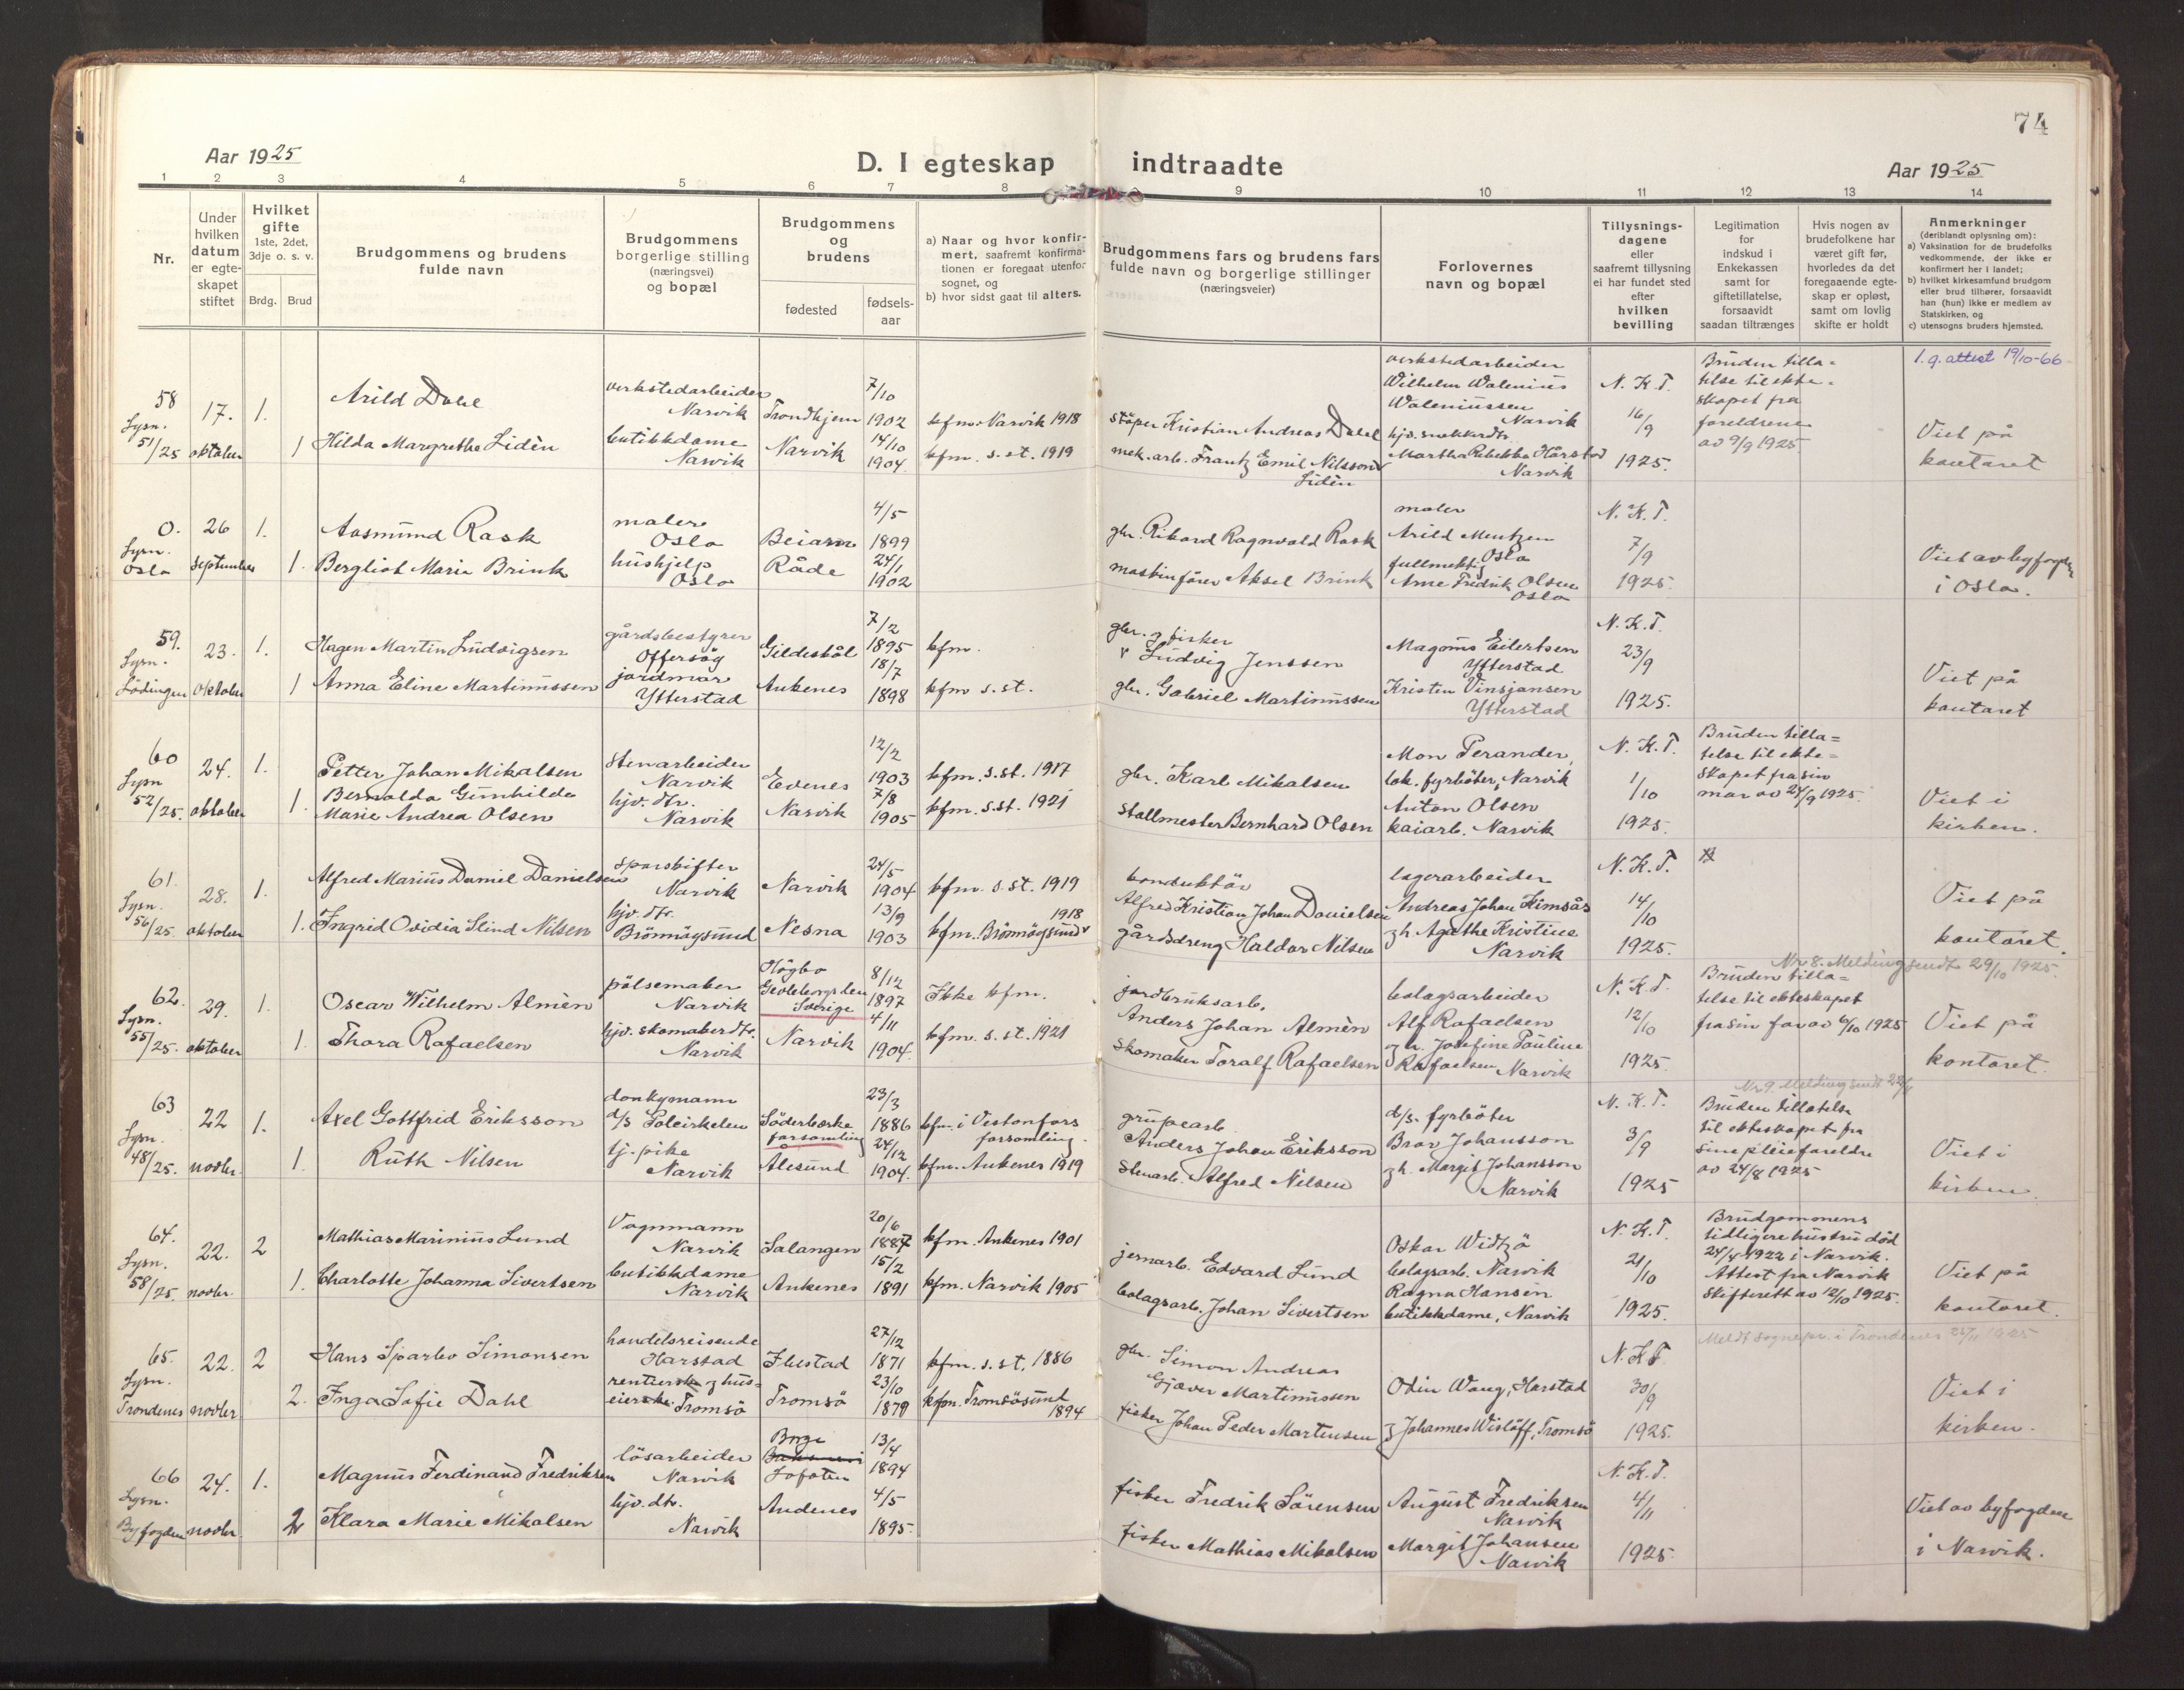 74
Aar 1925
D. I egteskap indtraadte
Aar 1925
1 2 3 4 5 6 7 8 9 10 11 12 13 14
Nr.
Under
hvilken
datum
er egte-
skapet
stiftet
Hvilket
gifte
1ste, 2det,
3dje o. s. v.
Brdg. Brud
Brudgommens og brudens
fulde navn
Brudgommens
borgerlige stilling
(næringsvei)
og bopæl
Brudgommens
og
brudens
fødested
fødsels-
aar
a) Naar og hvor konfir-
mert, saafremt konfirma-
tionen er foregaat utenfor
sognet, og
b) hvor sidst gaat til alters.
Brudgommens fars og brudens fars
fulde navn og borgerlige stillinger
(næringsveier)
Forlovernes
navn og bopæl
Tillysnings-
dagene
eller
saafremt tillysning
ei har fundet sted
efter
hvilken
bevilling
Legitimation
for
indskud i
Enkekassen
samt for
giftetillatelse,
forsaavidt
saadan tiltrænges
Hvis nogen av
brudefolkene har
været gift før,
hvorledes da det
foregaaende egte-
skap er opløst,
samt om lovlig
skifte er holdt
Anmerkninger
(deriblandt oplysning om):
a) Vaksination for de brudefolks
vedkommende, der ikke er
konfirmert her i landet;
b) hvilket kirkesamfund brudgom
eller brud tilhører, forsaavidt
han (hun) ikke er medlem av
Statskirken, og
c) utensogns bruders hjemsted.
58
Lysn.
51/25
17.
oktober
1.
1
Arild Dahl
Hilda Margrethe Lidèn
verkstedarbeider
Narvik
butikkdame
Narvik
Trondhjem
Narvik
7/10
1902
14/10
1904
kfm. Narvik 1918
kfm. s. st. 1919
støper Kristian Andreas Dahl
mek. arb. Frantz Emil Nilsson
Lidèn
verkstedarbeider
Wilhelm Walenius
Waleniussen
Narvik
hjv. snekkerdtr.
Martha Rebekka Hårstad
Narvik
N. K. T.
16/9
1925.
Bruden tilla-
telse til ekte-
skapet fra
foreldrene
av 9/9 1925.
l. g. attest 19/10-66
Viet på
kontoret
0.
Lysn.
Oslo
26
september
1.
1.
Aasmund Rask
Bergliot Marie Brink
maler
Oslo
hushjelp
Oslo
Beiarn
Råde
4/5
1899
24/1
1902
gbr. Rikard Ragnvald Rask
maskinfører Aksel Brink
maler
Arild Mentzen
Oslo
fullmektig
Arne Fredrik Olsen
Oslo
N. K. T.
7/9
1925.
Viet av byfogden
i Oslo.
59.
Lysn.
Lödingen
23.
oktober
1.
1
Hagen Martin Ludvigsen
Anna Eline Martinussen
gårdsbestyrer
Offersøy
jordmor
Ytterstad
Gildeskål
Ankenes
7/2
1895
18/7
1898
kfm.
kfm s. st.
gbr. og fisker
Ludvig Jenssen
gbr. Gabriel Martinussen
Magnus Eilertsen
Ytterstad
Kristen Vinsjansen
Ytterstad
N. K. T.
23/9
1925.
Viet på
kontoret
60
Lysn
52/25.
24.
oktober
1.
1.
Petter Johan Mikalsen
Bernalda Gunhilda
Marie Andrea Olsen
stenarbeider
Narvik
hjv. dtr.
Narvik
Evenes
Narvik
12/2
1903
7/8
1905
kfm. s. st. 1917
kfm. s. st. 1921
gbr. Karl Mikalsen
stallmester Bernhard Olsen
Mon Perander,
lok. fyrbøter, Narvik
Anton Olsen
kaiarb. Narvik
N. K. T.
1/10
1925.
Bruden tilla=
telse til ekte=
skapet fra sin
mor av 24/9 1925.
Viet i
kirken.
61.
Lysn.
56/25.
28.
oktober
1.
1.
Alfred Marius Daniel Danielsen
Ingrid Ovidia Slind Nilsen
sporskifter
Narvik
hjv. dtr.
Brönnöysund
Narvik
Nesna
24/5
1904.
13/9
1903
kfm. s. st. 1919
1918
kfm. Brönnöysund
konduktör
Alfred Kristian Johan Danielsen
gårdsdreng Haldor Nilsen
lagerarbeider
Andreas Johan Kimsås
og h. Agathe Kristine
Narvik
N. K. T.
14/10
1925.
Viet på
kontoret.
Nr 8. Melding sendt 29/10 1925.
62.
Lysn.
55/25.
29.
oktober
1.
1.
Oscar Wilhelm Almèn
Thora Rafaelsen
pölsemaker
Narvik
hjv. skomakerdtr.
Narvik
Högbo
Gevleborgslen
Sverige
Narvik
8/12
1897
4/11
1904.
Ikke kfm.
kfm. s. st. 1921
jordbruksarb.
Anders Johan Almèn
skomaker Toralf Rafaelsen
bolagsarbeider
Alf Rafaelsen
og h. Josefine Pauline
Rafaelsen Narvik
N. K. T.
12/10
1925.
Bruden tilla=
telse til ekteskapet
fra sin far av 6/10 1925
Viet på
kontoret.
Nr 9. Melding sendt
63
Lysn.
48/25.
22
novbr.
1.
1.
Axel Gottfrid Eriksson
Ruth Nilsen
donkymann
d/s Polcirkelen
tj. pike
Narvik
Söderbärke
forsamling
Ålesund
23/3
1886
24/12
1904.
kfm. i Vestanfors
forsamling.
kfm. Ankenes 1919
grupearb.
Anders Johan Eriksson
stenarb. Alfred Nilsen
d/s. fyrbøter
Bror Johansson
og h. Margit Johansson
Narvik
N. K. T.
3/9
1925
Bruden tillatelse
til ekteskapet fra
sine pleieforeldre
av 24/8 1925
Viet i
kirken.
64.
Lysn.
58/25.
22.
novbr.
2
1.
Mathias Marinius Lund
Charlotte Johanna Sivertsen
Vognmann
Narvik
butikkdame
Narvik
Salangen
Ankenes
20/6
1887
15/2
1891
kfm. Ankenes 1901
kfm. Narvik 1905
jernarb. Edvard Lund
bolagsarb. Johan Sivertsen
Oskar Widtzö
bolagsarb. Narvik
Ragna Hansen
butikkdame, Narvik
N. K. T.
21/10
1925.
Brudgommens
tidligere hustru död
24/4 1922 i Narvik.
Attest fra Narvik
skifterett av 12/10 1925.
Viet på
kontoret.
Meldt sognepr. i Trondenes 26/11 1925
65.
Lysn.
Trondenes
22.
novbr.
2
2.
Hans Sparbo Simonsen
Inga Sofie Dahl
handelsreisende
Harstad
rentier og hus-
eier Tromsö
Ibestad
Tromsö
27/12
1871
23/10
1879
kfm. s. st. 1886
kfm. Tromsösund
1894
gbr. Simon Andreas
Gjæver Martinussen
fisker Johan Peder Martensen
Odin Wang, Harstad
og Johannes Wislöff, Tromsö
N. K. T.
30/9
1925.
Viet i
kirken.
66
Lysn.
Byfogden
24.
novbr.
1.
2
Magnus Ferdinand Fredriksen
Klara Marie Mikalsen
lösarbeider
Narvik
hjv. dtr.
Narvik
Borge
Lofoten
Andenes
13/4
1894
4/5
1895.
fisker Fredrik Sörensen
fisker Mathias Mikalsen
August Fredriksen
Narvik
Margit Johansen
Narvik
N. K. T.
4/11
1925.
Viet av byfogden
i Narvik.